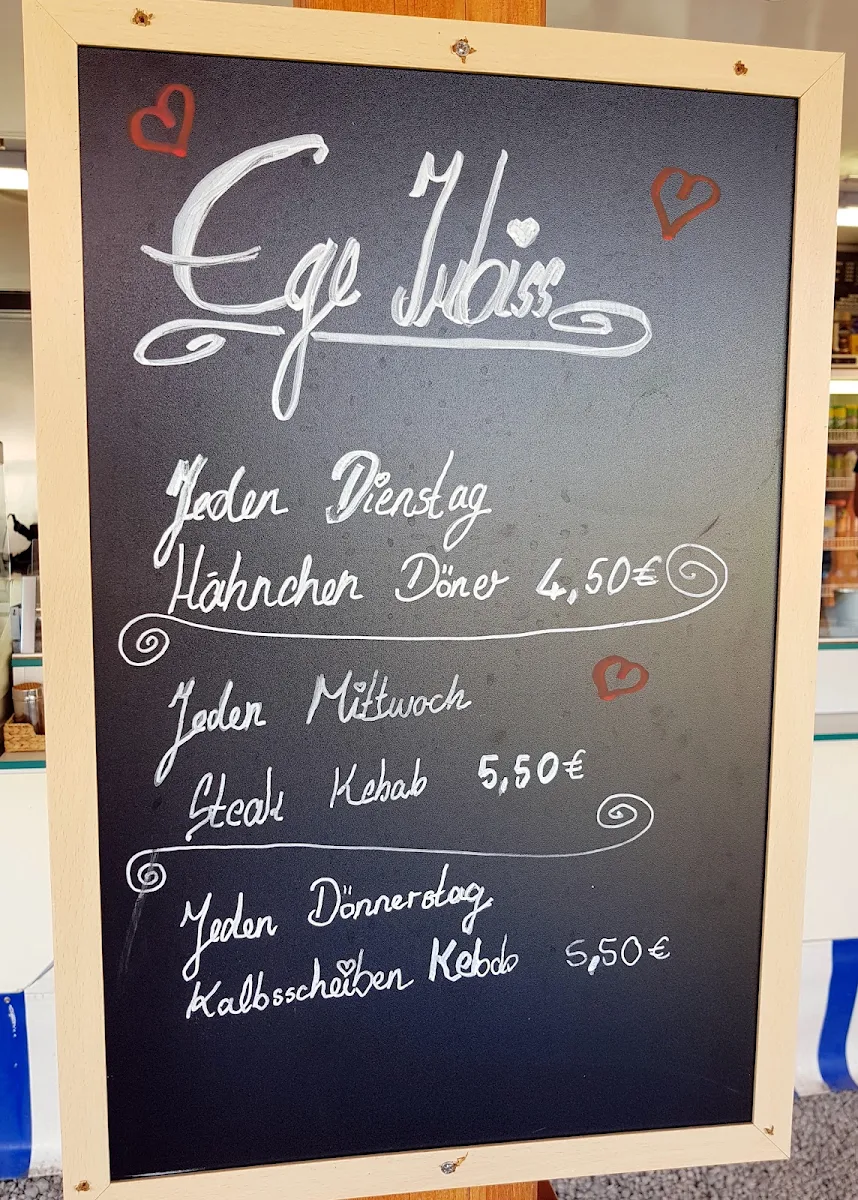 Ege Imbiss
Jeden Dienstag
Hähnchen Döner 4,50€
Jeden Mittwoch
Steak Kebab 5,50€
Jeden Dönnerstag
Kalbsscheiben Kebab 5,50€